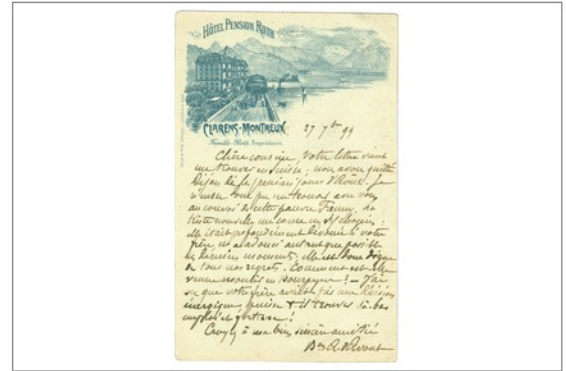 HÔTEL PENSION ROTH
CLARENS-MONTREUX
Famille Roth, Propriétaire.
27 7bre 94
Chère cousine, Votre lettre vient
me trouver en Suisse; nous avons quitté
Dijon dès les premiers jours d'Août. Je
au convoi de cette pauvre Fanny, sa
triste nouvelle me cause un vif chagrin;
elle était profondément dévouée à votre
frère, et a adouci autant que possible
les derniers moments. Elle est donc digne
de tous nos regrets. Comment est-elle
venue mourir en Bourgogne? – J'ai
su que votre frère avait pris une décision
énergique, puisse-t-il trouver là-bas
emploi et fortune!
Croyez à ma bien sincère amitié